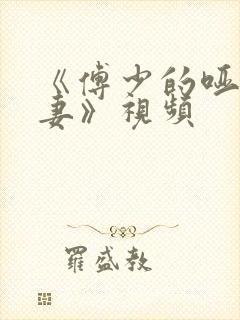 《傅少的哑
妻》視頻
羅盛教